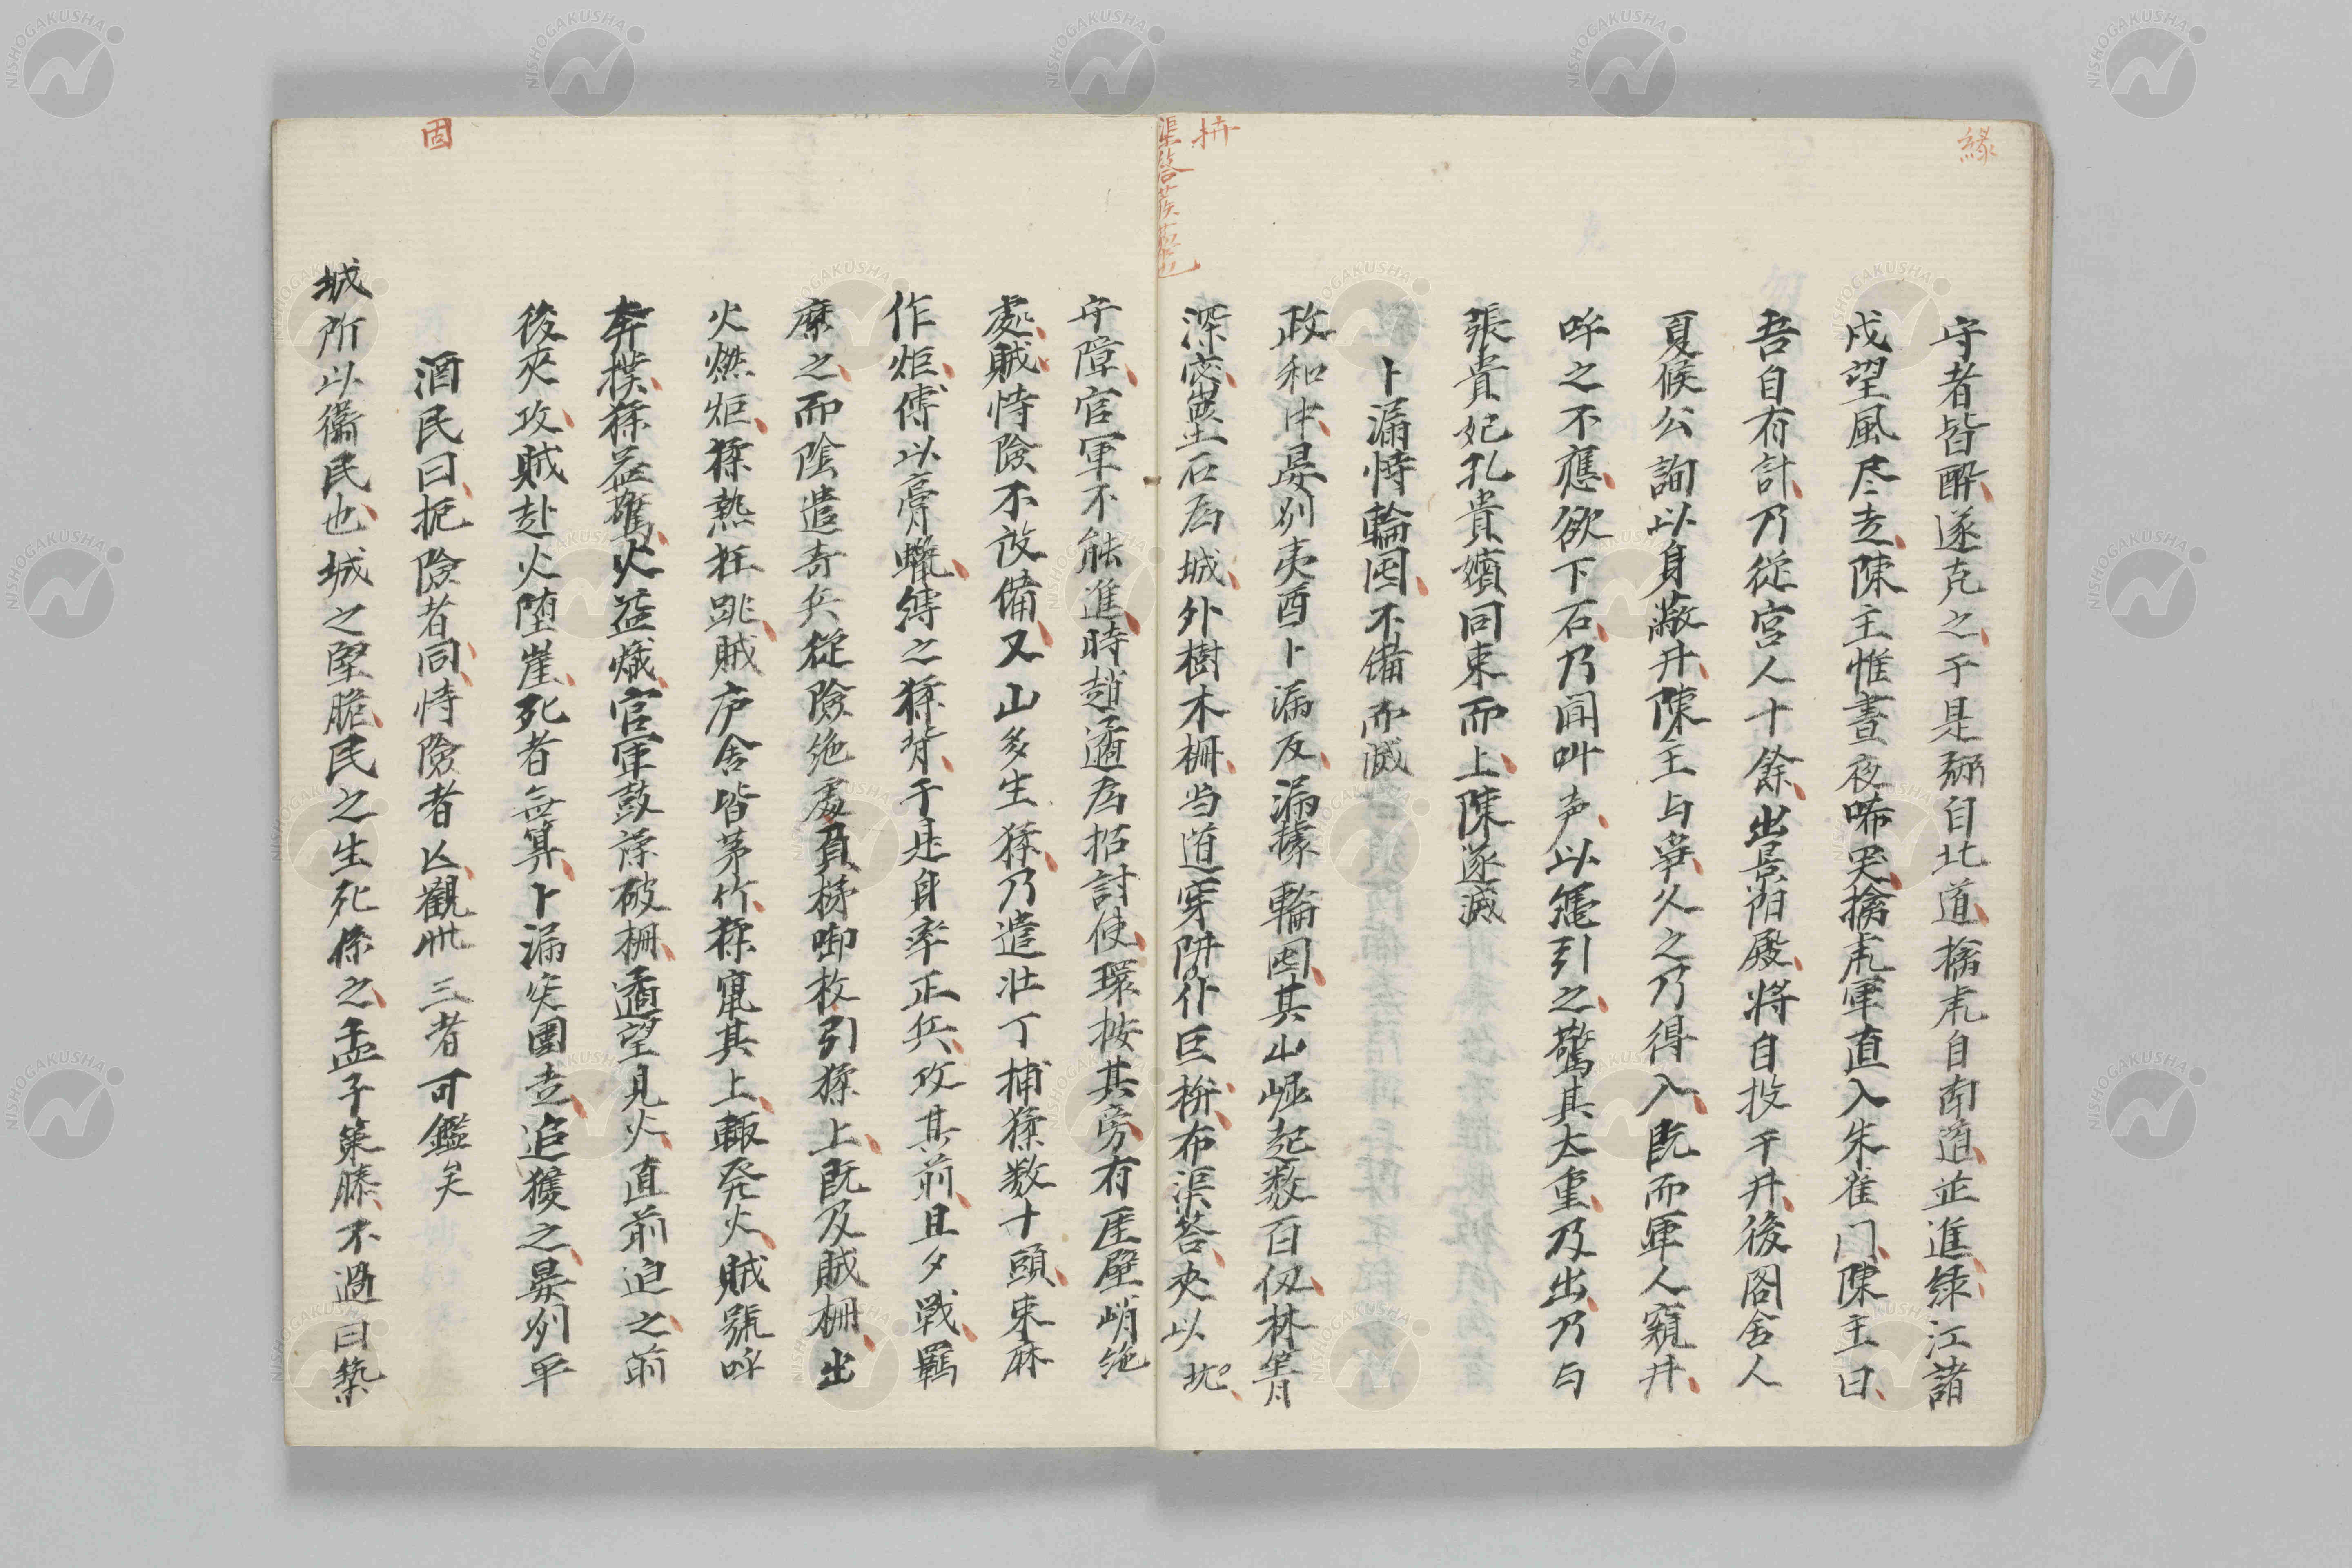 緣
守者皆醉遂克之于是弼自北道擒虎自南道並進绿江諸
戍望風尽走陳主惟晝夜唏哭擒虎軍直入朱雀门陳主曰
吾自有計乃從宮人十餘出景阳殿将自投于井後閣舍人
夏候公詢以身蔽井陳主与爭久之乃得入既而軍人窺井
呼之不應欲下石乃闻叫声以繩引之驚其太重及出乃与
張貴妃孔貴嬪同束而上陳遂滅
卜漏恃輪囤不備而滅
政和中晏州夷酉卜漏反漏據輪囤其山崛起数百仭林箐
深密壘石為城外樹木柵当道穿阱仆巨枿布渠荅夾以坑
枿
渠答蒺藜也
守障官軍不能進時趙遹為招討使環按其旁有厓壁峭绝
處賊恃險不设備又山多生猱乃遣壮丁捕猱数十頭束麻
作炬傅以膏蠟縛之猱背于是身率正兵攻其前旦夕戰羈
縻之而陰遣奇兵從險绝處負梯啣枚引猱上既及賊柵出
火燃炬猱熱狂跳賊庐舍皆茅竹猱竄其上輙発火賊號呼
奔撲猱益驚火益熾官軍鼓譟破柵遹望見火直前迫之前
後夾攻賊赴火堕崖死者無算卜漏突圍走追獲之晏州平
酒民曰扼險者固恃險者亾觀此三者可鑑矣
固
城所以衞民也城之堅脆民之生死係之孟子策滕不過曰築